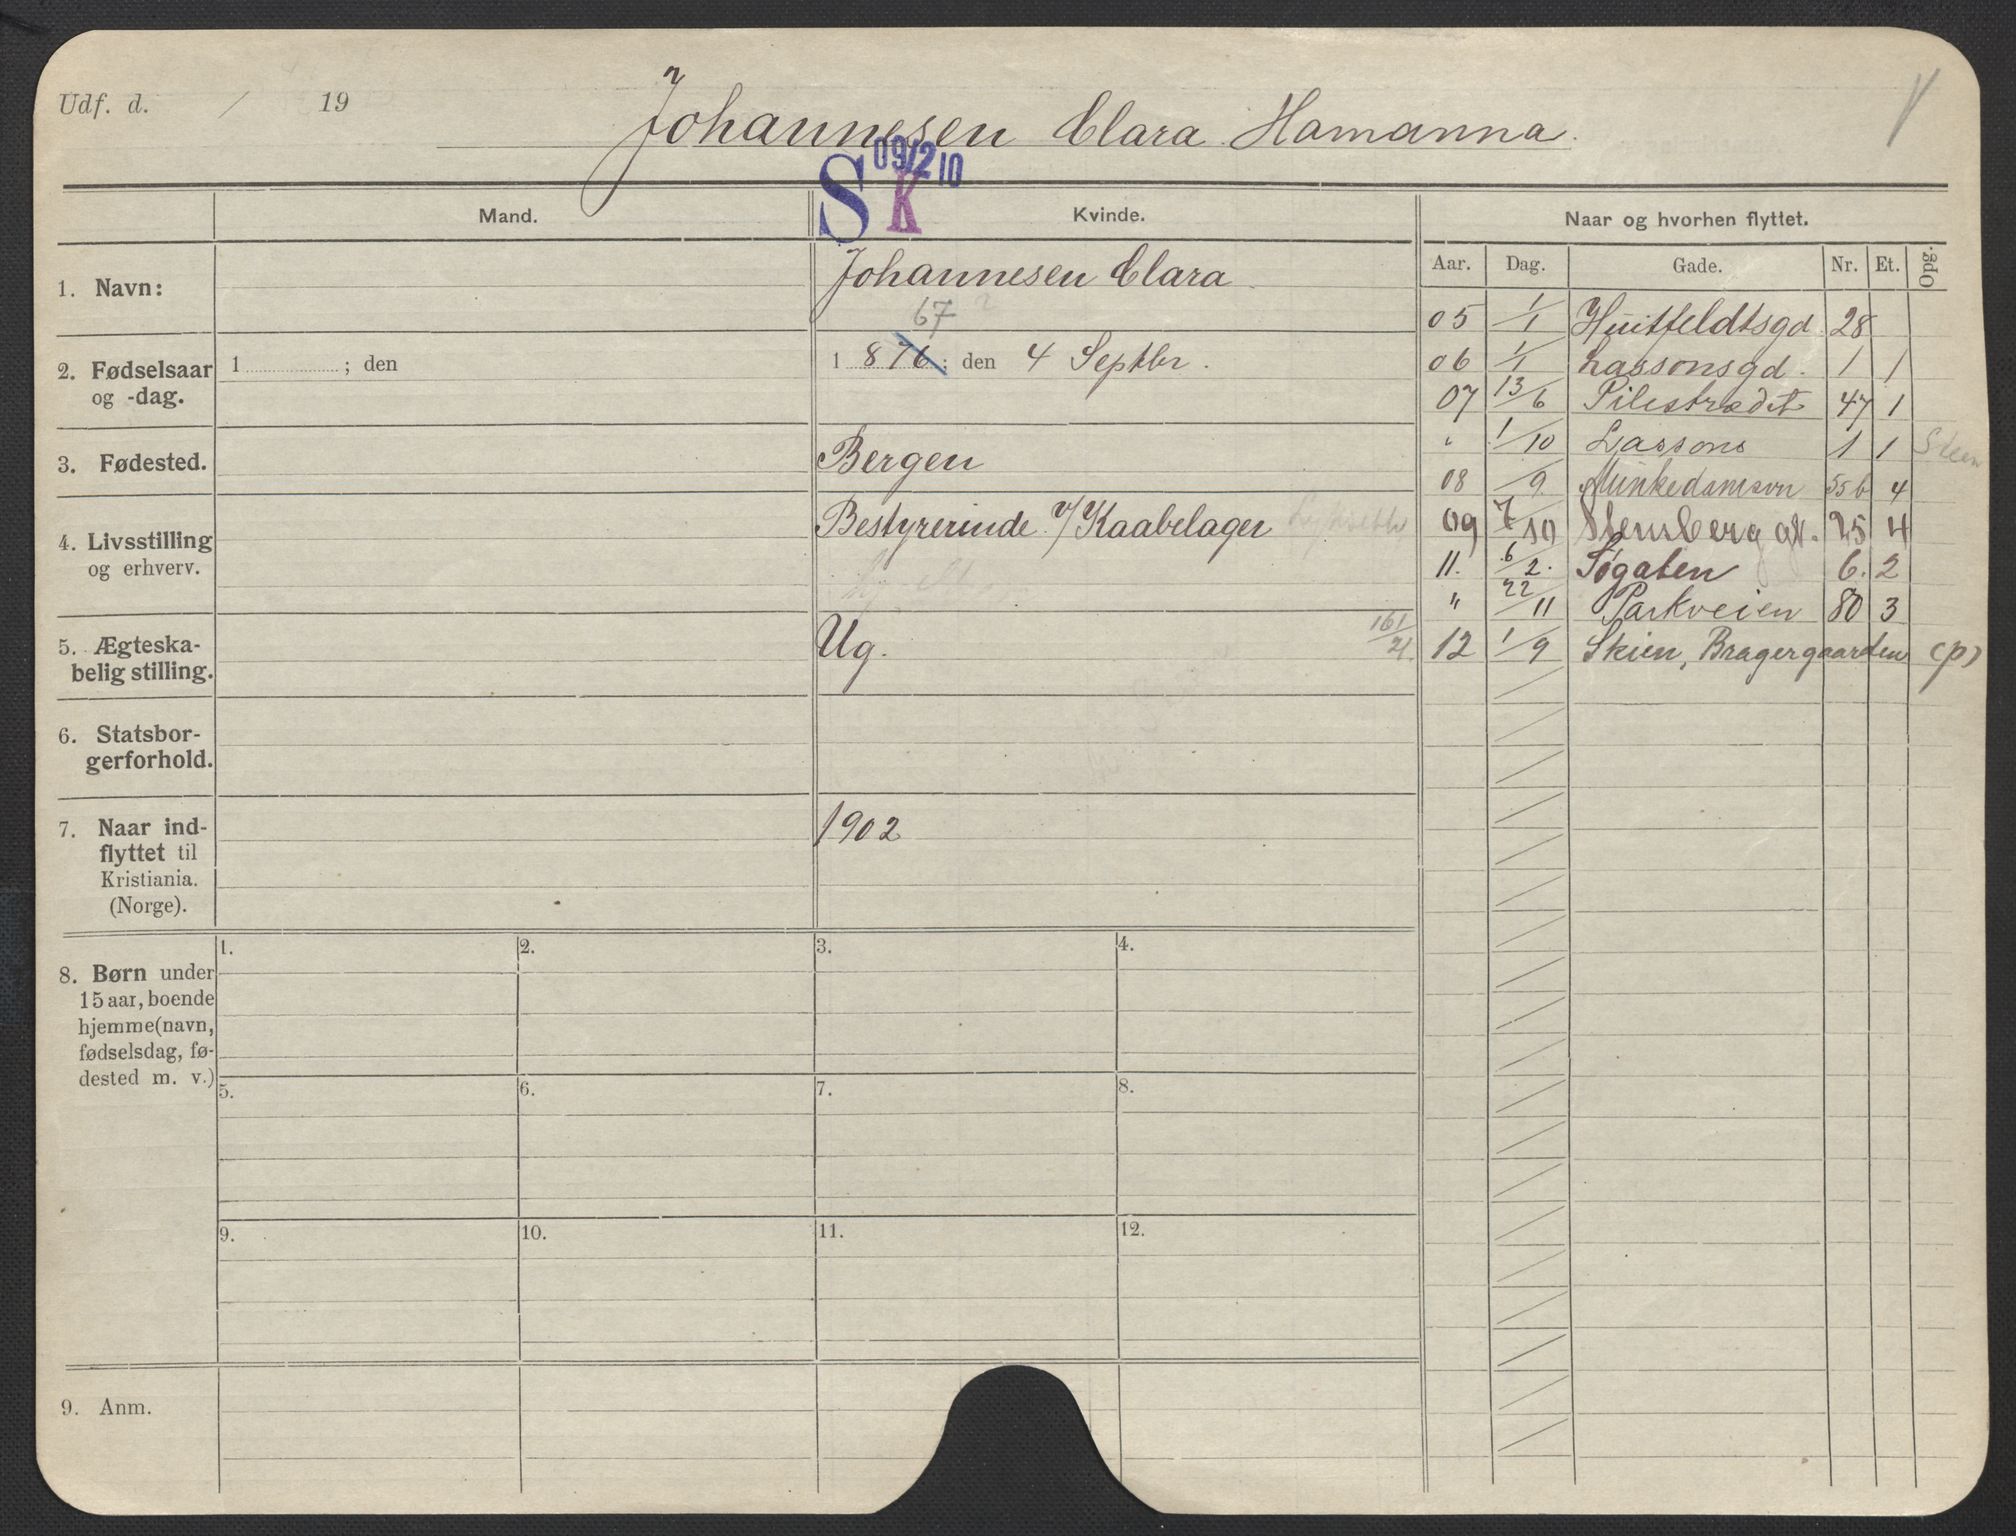 Udf. d. / 19
Johannesen Clara Hamanna.
09/2 10
S K
Mand.
Kvinde.
Naar og hvorhen flyttet.
Aar. Dag. Gade. Nr. Et. Opg.
1. Navn:
Johannesen Clara
67
2. Fødselsaar
og -dag.
1 ; den
1 876; den 4 Septbr.
3. Fødested.
Bergen
4. Livsstilling
og erhverv.
Bestyrerinde v/ Kaabelager
5. Ægteska-
belig stilling.
Ug.
161/21.
6. Statsbor-
gerforhold.
7. Naar ind-
flyttet til
Kristiania.
(Norge).
1902
8. Børn under
15 aar, boende
hjemme (navn,
fødselsdag, fø-
dested m. v.)
1. 2. 3. 4.
5. 6. 7. 8.
9. 10. 11. 12.
9. Anm.
05 1/1 Huitfeldtsgd. 28
06 1/1 Lassonsgd. 1 1
07 13/6 Pilestrædet 47 1
" 1/10 Lassons 1 1 Steen
08 /9. Munkedamsvn 55b 4
09 7/10 Stensberg gt. 25 4
11. 6/2. Søgaten 6. 2
" 22/11 Parkveien 80 3
12 1/9 Skien, Bragergaarden (p)